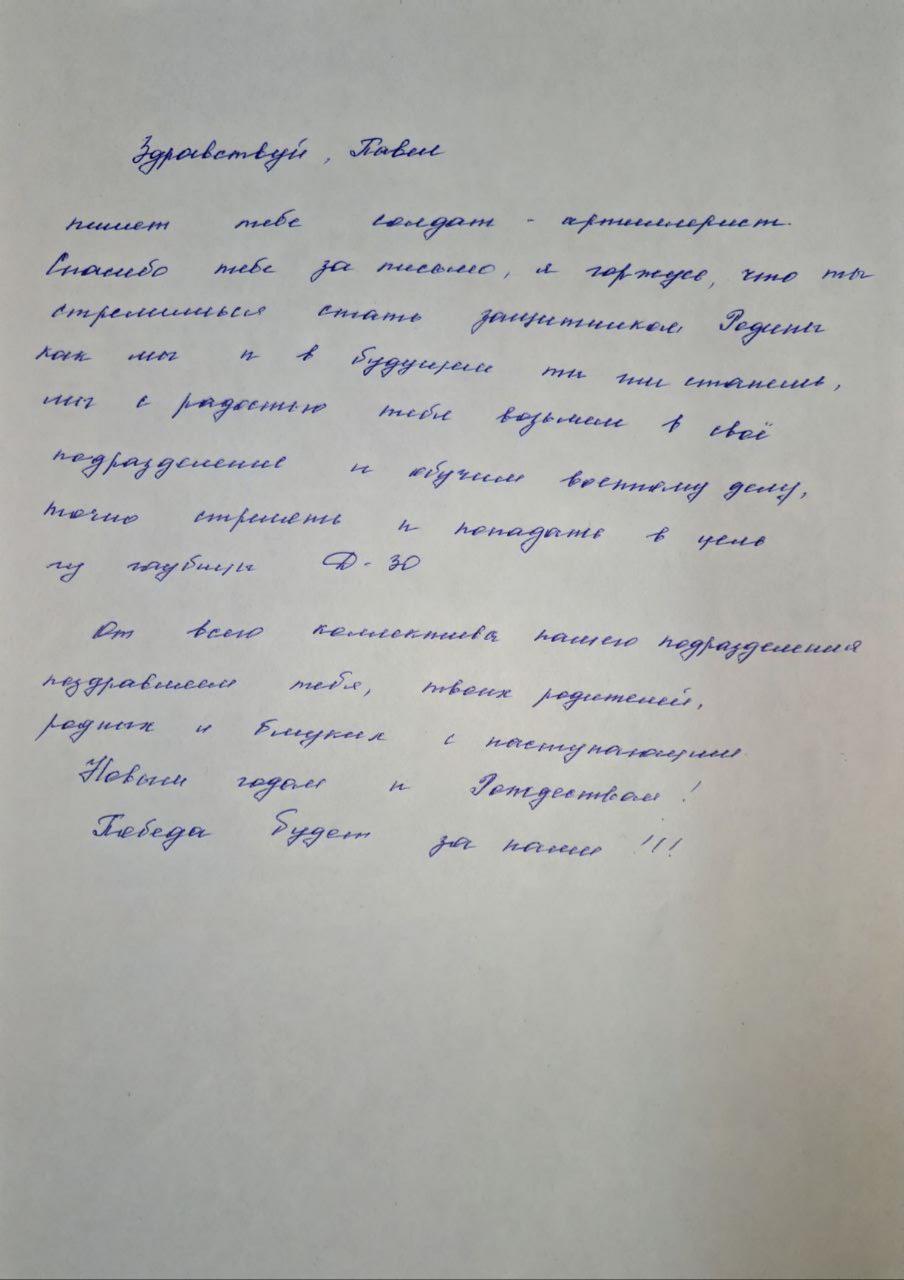 Здравствуй, Павел
пишет тебе солдат - артиллерист.
Спасибо тебе за письмо, я горжусь, что ты
стремишься стать защитником Родины
как мы и в будущем ты им станешь,
мы с радостью тебя возьмем в своё
подразделение и обучим военному делу,
точно стрелять и попадать в цель
из гаубицы Д-30
От всего коллектива нашего подразделения
поздравляем тебя, твоих родителей,
родных и близких с наступающим
Новым годом и Рождеством!
Победа будет за нами!!!